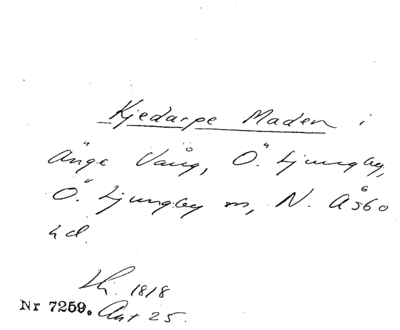 Kjedarpe Maden i
Änge Vång, Ö. Ljungby,
Ö. Ljungby sn, N. Åsbo
hd.
Lh. 1818
Nr 7259. Akt 25.